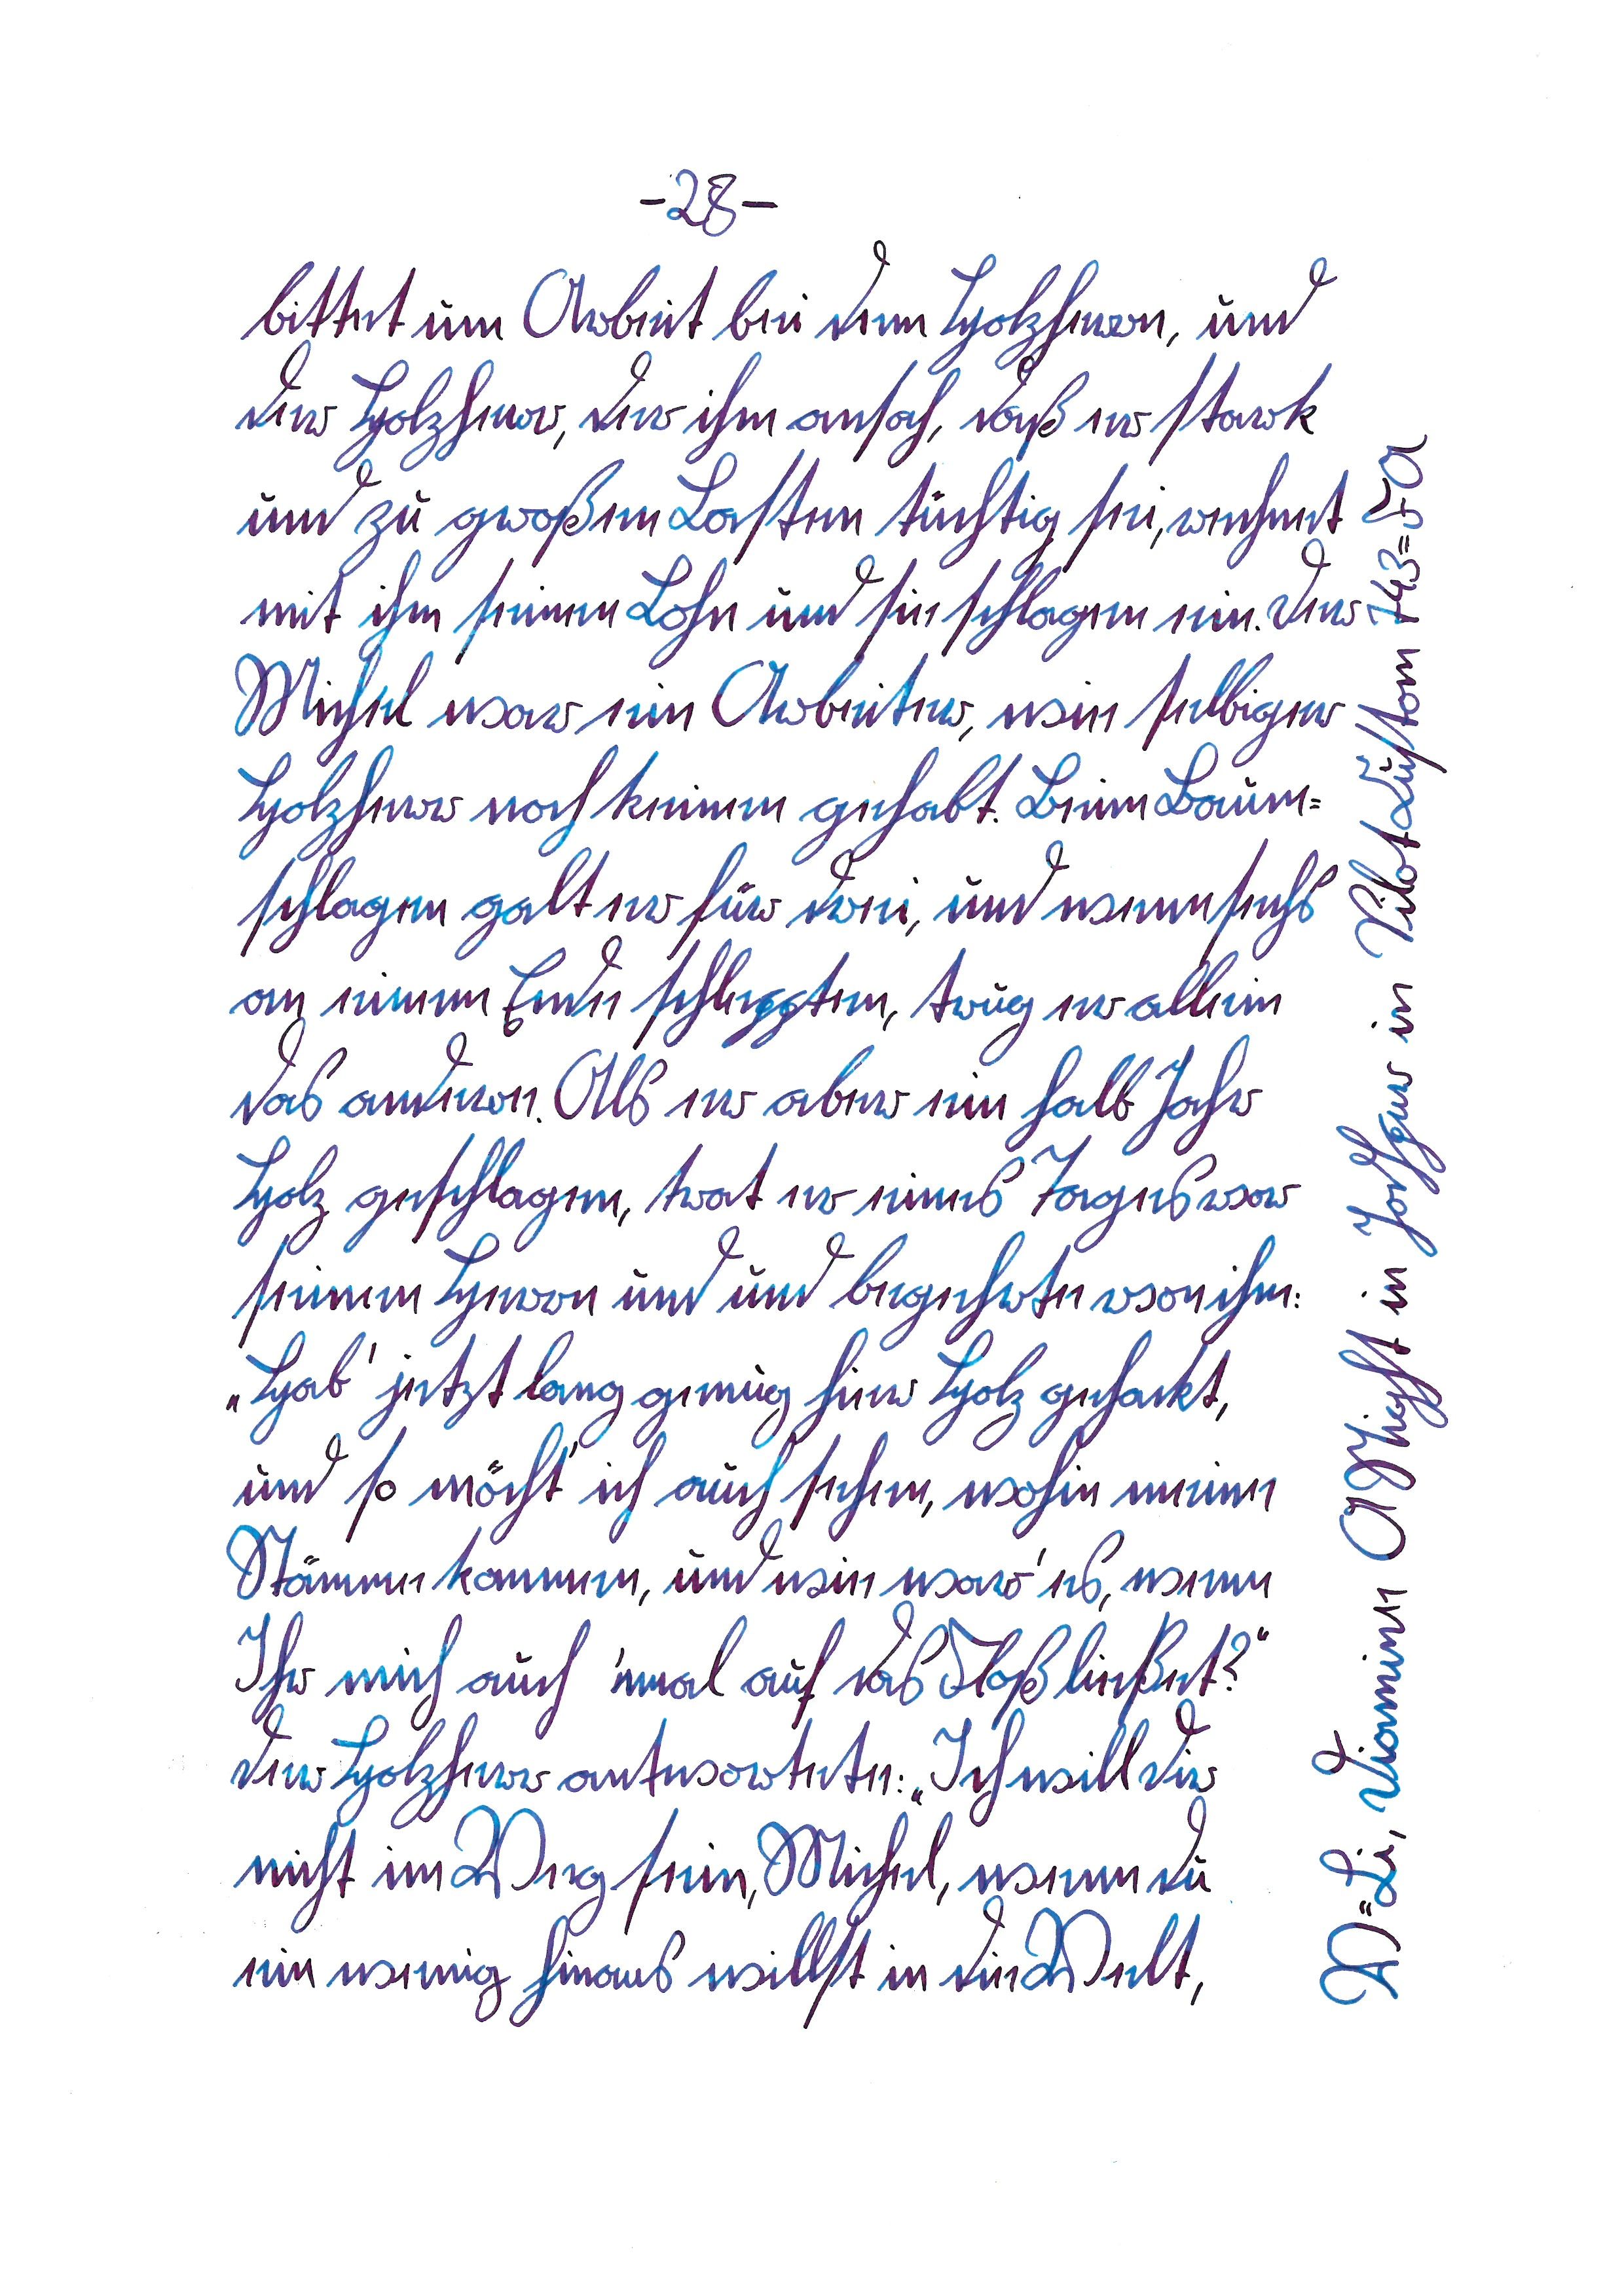 -28-
bittet um Arbeit bei dem Holzherrn, und
der Holzherr, der ihm ansah, daß er stark
und zu großen Lasten tüchtig sei, rechnet
mit ihm seinen Lohn und sie schlagen ein. Der
Michel war ein Arbeiter, wie selbiger
Holzherr noch keinen gehabt. Beim Baum=
schlagen galt er für drei, und wenn sechs
an einem Ende schleppten, trug er allein
das andere. Als er aber ein halb Jahr
Holz geschlagen, trat er eines Tages vor
seinen Herrn und und begehrte von ihm:
„Hab' jetzt lang genug hier Holz gehackt,
und so möcht' ich auch sehen, wohin meine
Stämme kommen, und wie war' es, wenn
Ihr mich auch 'nmal auf das Floß ließet?“
Der Holzherr antwortete: „Ich will dir
nicht im Weg sein, Michel, wenn du
ein wenig hinaus willst in die Welt,
Diamine in in Pilot Custom 743=FA